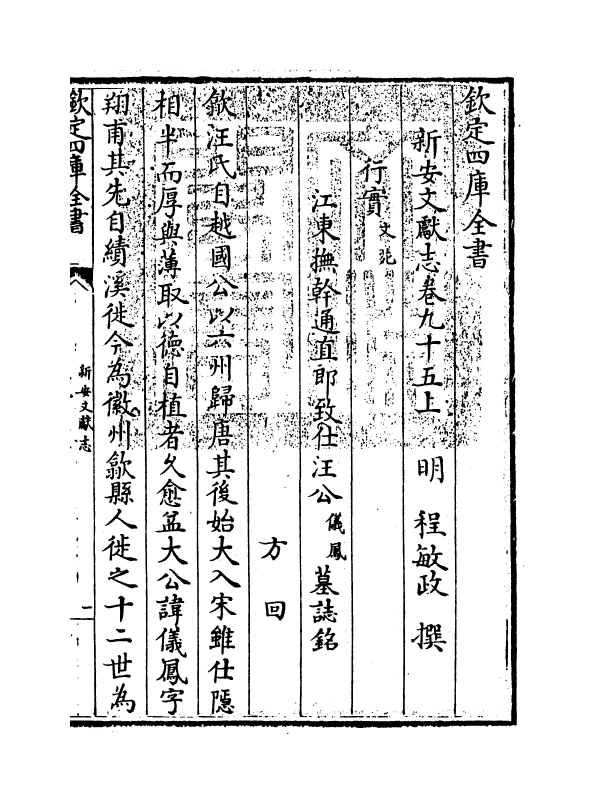 欽定四庫全書
新安文獻志卷九十五上　明　程敏政　撰
行實
江東撫幹通直郎致仕汪公儀鳳墓誌銘
方回
歙汪氏自越國公以六州歸唐其後始大入宋雖仕隱
相半而厚與薄取以德自植者久愈益大公諱儀鳳字
翔甫其先自績溪徙今為徽州歙縣人徙之十二世為
欽定四庫全書
新安文獻志
一